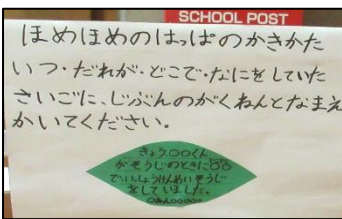 SCHOOL POST
ほめほめのはっぱのかきかた
いつ・だれが・どこで・なにをしていた
さいごに、じぶんのがくねんとなまえ
かいてください。
きょう、〇〇くん
がそうじのときに〇〇
でいっしょうけんめいそうじ
をしていました。